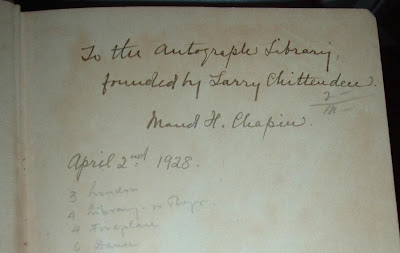 To the Autograph Library,
founded by Larry Chittenden.
Maud H. Chapin.
April 2nd 1928.
3 London
4 Library - or
4 Fireplace
6